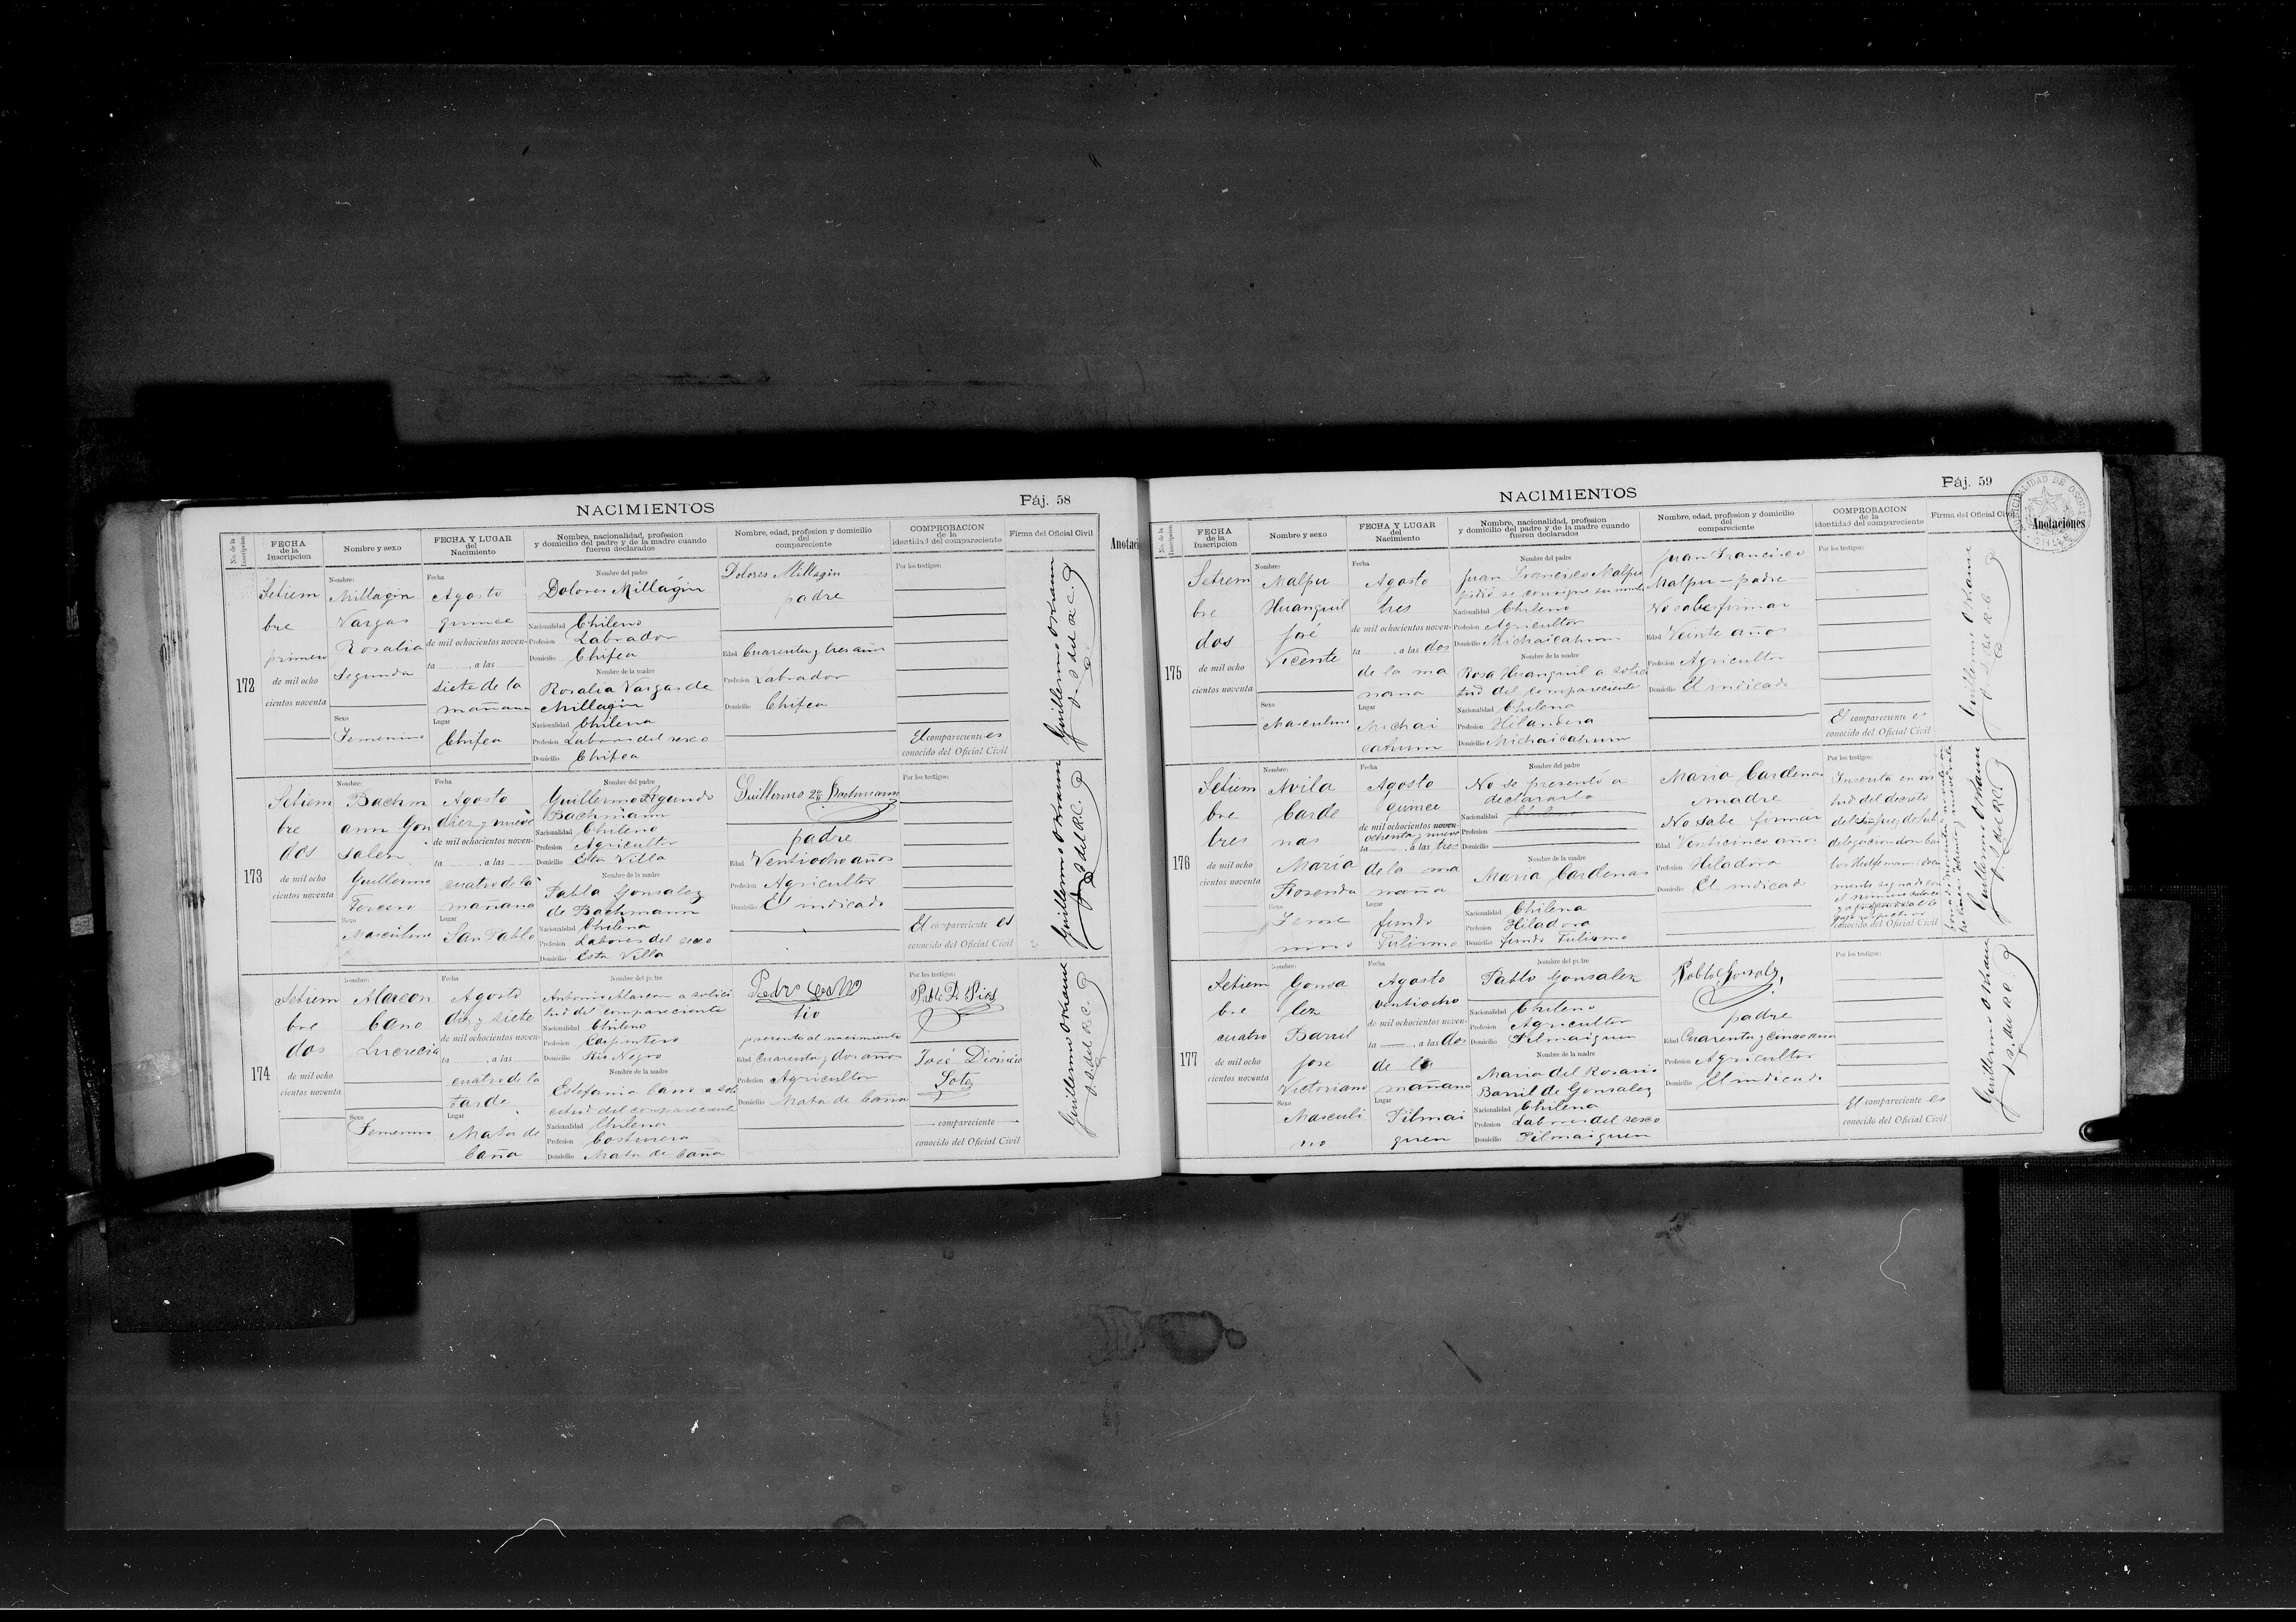 NACIMIENTOS
Páj. 58
No. de la Inscripcion
FECHA de la Inscripcion
Nombre y sexo
FECHA Y LUGAR del Nacimiento
Nombre, nacionalidad, profesion y domicilio del padre y de la madre cuando fueren declarados
Nombre, edad, profesion y domicilio del compareciente
COMPROBACION de la identidad del compareciente
Firma del Oficial Civil
Anotac
172
Setiem
bre
primero
de mil ocho
cientos noventa
Nombre:
Millagin
Vargas
Rosalia
Segunda
Sexo
Femenino
Fecha
Agosto
quince
de mil ochocientos noven-
ta a las
siete de la
mañana
Lugar
Chifca
Nombre del padre
Dolores Millagin
Nacionalidad Chileno
Profesion Labrador
Domicilio Chifca
Nombre de la madre
Rosalia Vargas de
Millagin
Nacionalidad Chilena
Profesion Labores del sexo
Domicilio Chifca
Dolores Millagin
padre
Edad Cuarenta y tres años
Profesion Labrador
Domicilio Chifca
Por los testigos:
El compareciente es
conocido del Oficial Civil
173
Setiem
bre
dos
de mil ocho
cientos noventa
Nombre:
Bachm
ann Gon
salez
Guillermo
Tercero
Sexo
Masculino
Fecha
Agosto
diez y nueve
de mil ochocientos noven-
ta a las
cuatro de la
mañana
Lugar
San Pablo
Nombre del padre
Guillermo Segundo
Bachmann
Nacionalidad Chileno
Profesion Agricultor
Domicilio Esta Villa
Nombre de la madre
Pabla Gonsalez
de Bachmann
Nacionalidad Chilena
Profesion Labores del sexo
Domicilio Esta Villa
Guillermo 2º Bachmann
padre
Edad Ventiocho años
Profesion Agricultor
Domicilio El indicado
Por los testigos:
El compareciente es
conocido del Oficial Civil
174
Setiem
bre
dos
de mil ocho
cientos noventa
Nombre:
Alarcon
Cano
Lucrecia
Sexo
Femenino
Fecha
Agosto
diez y siete
de mil ochocientos noven-
ta a las
cuatro de la
tarde
Lugar
Mata de
Caña
Nombre del padre
Antonio Alarcon a solici
tud del compareciente
Nacionalidad Chileno
Profesion Carpintero
Domicilio Rio Negro
Nombre de la madre
Estefania Cano a soli
citud del compareciente
Nacionalidad Chilena
Profesion Costurera
Domicilio Mata de Caña
Pedro
tio
presente al nacimiento
Edad Cuarenta y dos años
Profesion Agricultor
Domicilio Mata de Caña
Por los testigos:
José Dionicio
Soto
compareciente
conocido del Oficial Civil
NACIMIENTOS
Páj. 59
No. de la Inscripcion
FECHA de la Inscripcion
Nombre y sexo
FECHA Y LUGAR del Nacimiento
Nombre, nacionalidad, profesion y domicilio del padre y de la madre cuando fueren declarados
Nombre, edad, profesion y domicilio del compareciente
COMPROBACION de la identidad del compareciente
Firma del Oficial Civil
Anotaciones
175
Setiem
bre
dos
de mil ocho
cientos noventa
Nombre:
Malpu
Huanquil
José
Vicente
Sexo
Masculino
Fecha
Agosto
tres
de mil ochocientos noven-
ta a las dos
de la ma
nana
Lugar
Michai
cahuin
Nombre del padre
Juan Francisco Malpu
pidió se consigne su nombre
Nacionalidad Chileno
Profesion Agricultor
Domicilio Michaicahuin
Nombre de la madre
Rosa Huanquil a solici
tud del compareciente
Nacionalidad Chilena
Profesion Hilandera
Domicilio Michaicahuin
Juan Francisco
Malpu - padre
No sabe firmar
Edad Veinte años
Profesion Agricultor
Domicilio El indicado
Por los testigos:
El compareciente es
conocido del Oficial Civil
176
Setiem
bre
tres
de mil ocho
cientos noventa
Nombre:
Avila
Carde
nas
Maria
Rosenda
Sexo
Feme
nino
Fecha
Agosto
quince
de mil ochocientos noven-
ochenta y nueve
ta a las tres
de la ma
ñana
Lugar
fundo
Nombre del padre
No se presentó a
declararlo
Nacionalidad Chileno
Profesion
Domicilio
Nombre de la madre
Maria Cardenas
Nacionalidad Chilena
Profesion Hiladora
Domicilio fundo
Maria Cardenas
madre
No sabe firmar
Edad Venticinco años
Profesion Hiladora
Domicilio El indicado
Por los testigos:
Inscrita en vir
tud del decreto
conocido del Oficial Civil
177
Setiem
bre
cuatro
de mil ocho
cientos noventa
Nombre:
Gonsa
lez
Barril
Jose
Victoriano
Sexo
Masculi
no
Fecha
Agosto
ventiocho
de mil ochocientos noven-
ta a las dos
de la
mañana
Lugar
Pilmai
quen
Nombre del padre
Pablo Gonsalez
Nacionalidad Chileno
Profesion Agricultor
Domicilio Pilmaiquen
Nombre de la madre
Maria del Rosario
Barril de Gonsalez
Nacionalidad Chilena
Profesion Labores del sexo
Domicilio Pilmaiquen
Pablo Gonsalez
padre
Edad Cuarenta y cinco años
Profesion Agricultor
Domicilio El indicado
Por los testigos:
El compareciente es
conocido del Oficial Civil